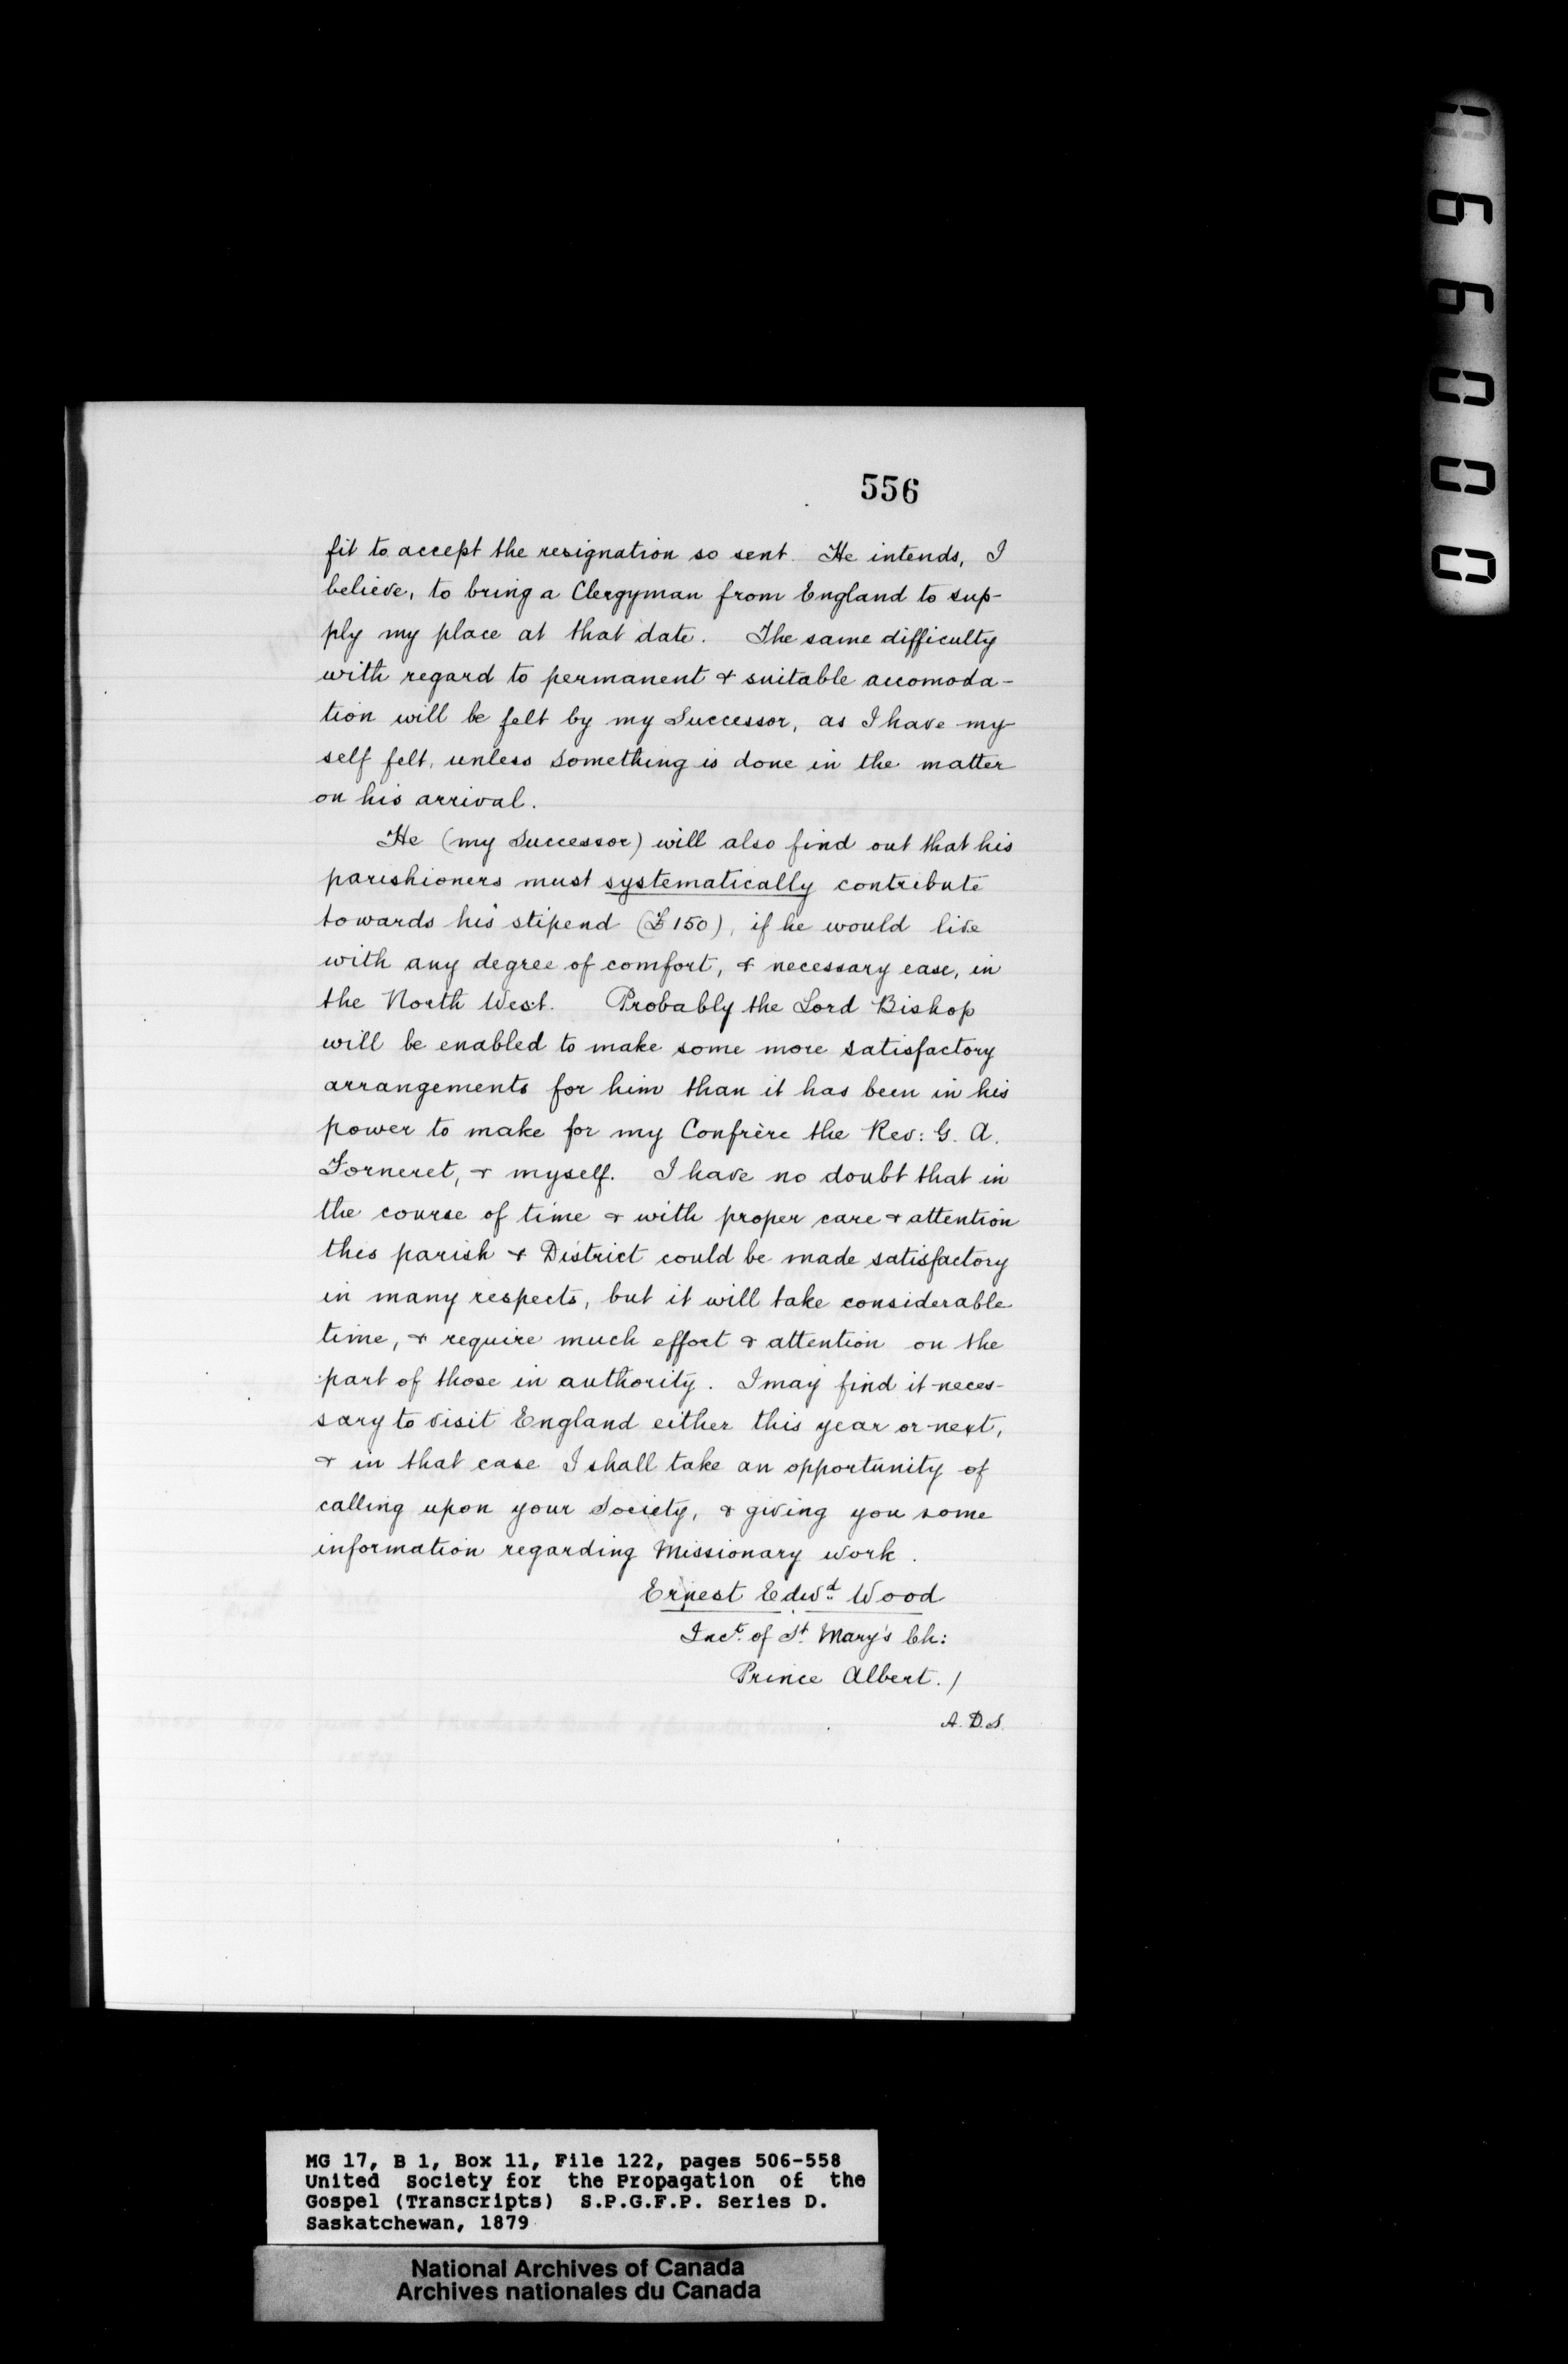 556
fit to accept the resignation so sent. He intends, I
believe, to bring a Clergyman from England to sup-
ply my place at that date. The same difficulty
with regard to permanent & suitable accomoda-
tion will be felt by my Successor, as I have my-
self felt, unless something is done in the matter
on his arrival.
He (my Successor) will also find out that his
parishioners must systematically contribute
towards his stipend (£150), if he would live
with any degree of comfort, & necessary ease, in
the North West. Probably the Lord Bishop
will be enabled to make some more satisfactory
arrangements for him than it has been in his
power to make for my Confrère the Rev: G. A.
Forneret, & myself. I have no doubt that in
the course of time & with proper care & attention
this parish & District could be made satisfactory
in many respects, but it will take considerable
time, & require much effort & attention on the
part of those in authority. I may find it neces-
sary to visit England either this year or next,
& in that case I shall take an opportunity of
calling upon your Society, & giving you some
information regarding Missionary work.
Ernest Edwd. Wood
Inct. of St. Mary's Ch:
Prince Albert. /
A. D. S.
MG 17, B 1, Box 11, File 122, pages 506-558
United Society for the Propagation of the
Gospel (Transcripts) S.P.G.F.P. Series D.
Saskatchewan, 1879
National Archives of Canada
Archives nationales du Canada